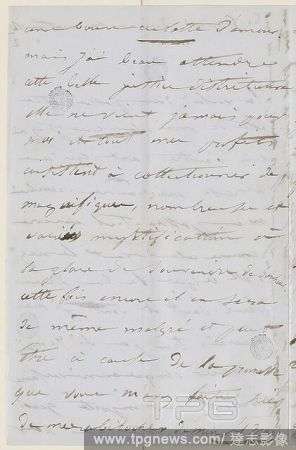 une bonne culotte d'amour
mais j'ai beau attendre
cette belle petite distribution
elle ne vient jamais pour
moi et tout mes profits
consistent à collectionner de
magnifiques, nombreuses et
variées mystifications à
la place de souvenirs de
cette fois encore il en sera
de même malgré et peut
être à cause de la promesse
que vous m'avez faite
de
TPG
www.tpgnews.com / 達志影像